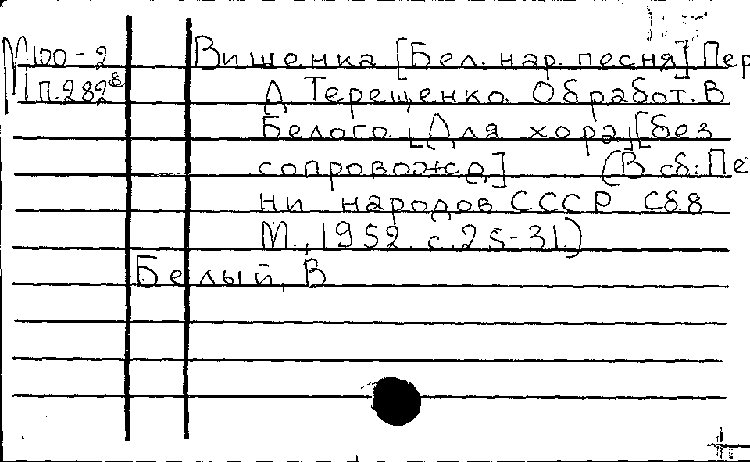 М100-2 Вишенка [Бел. нар. песня] Пер
П.282⁸ А Терещенко. Обработ. В
Белого [Для хора] [без
сопровожд.] (В сб: Пе
ни народов СССР Сб8
М., 1952. с. 25-31.)
Белый, В